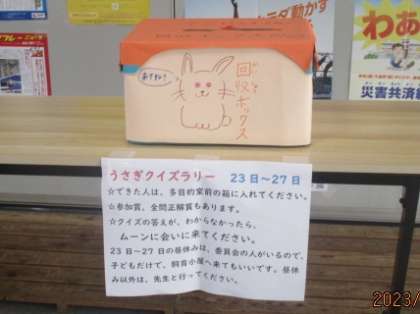 カラダ動かす
わあ
災害共済給
あってね!
回収ボックス
うさぎクイズラリー 23日～27日
☆できた人は、多目的室前の箱に入れてください。
☆参加賞、全問正解賞もあります。
☆クイズの答えが、わからなかったら、
ムーンに会いに来てください。
23日～27日の昼休みは、委員会の人がいるので、
子どもだけで、飼育小屋へ来てもいいです。昼休
み以外は、先生と行ってください。
2023/